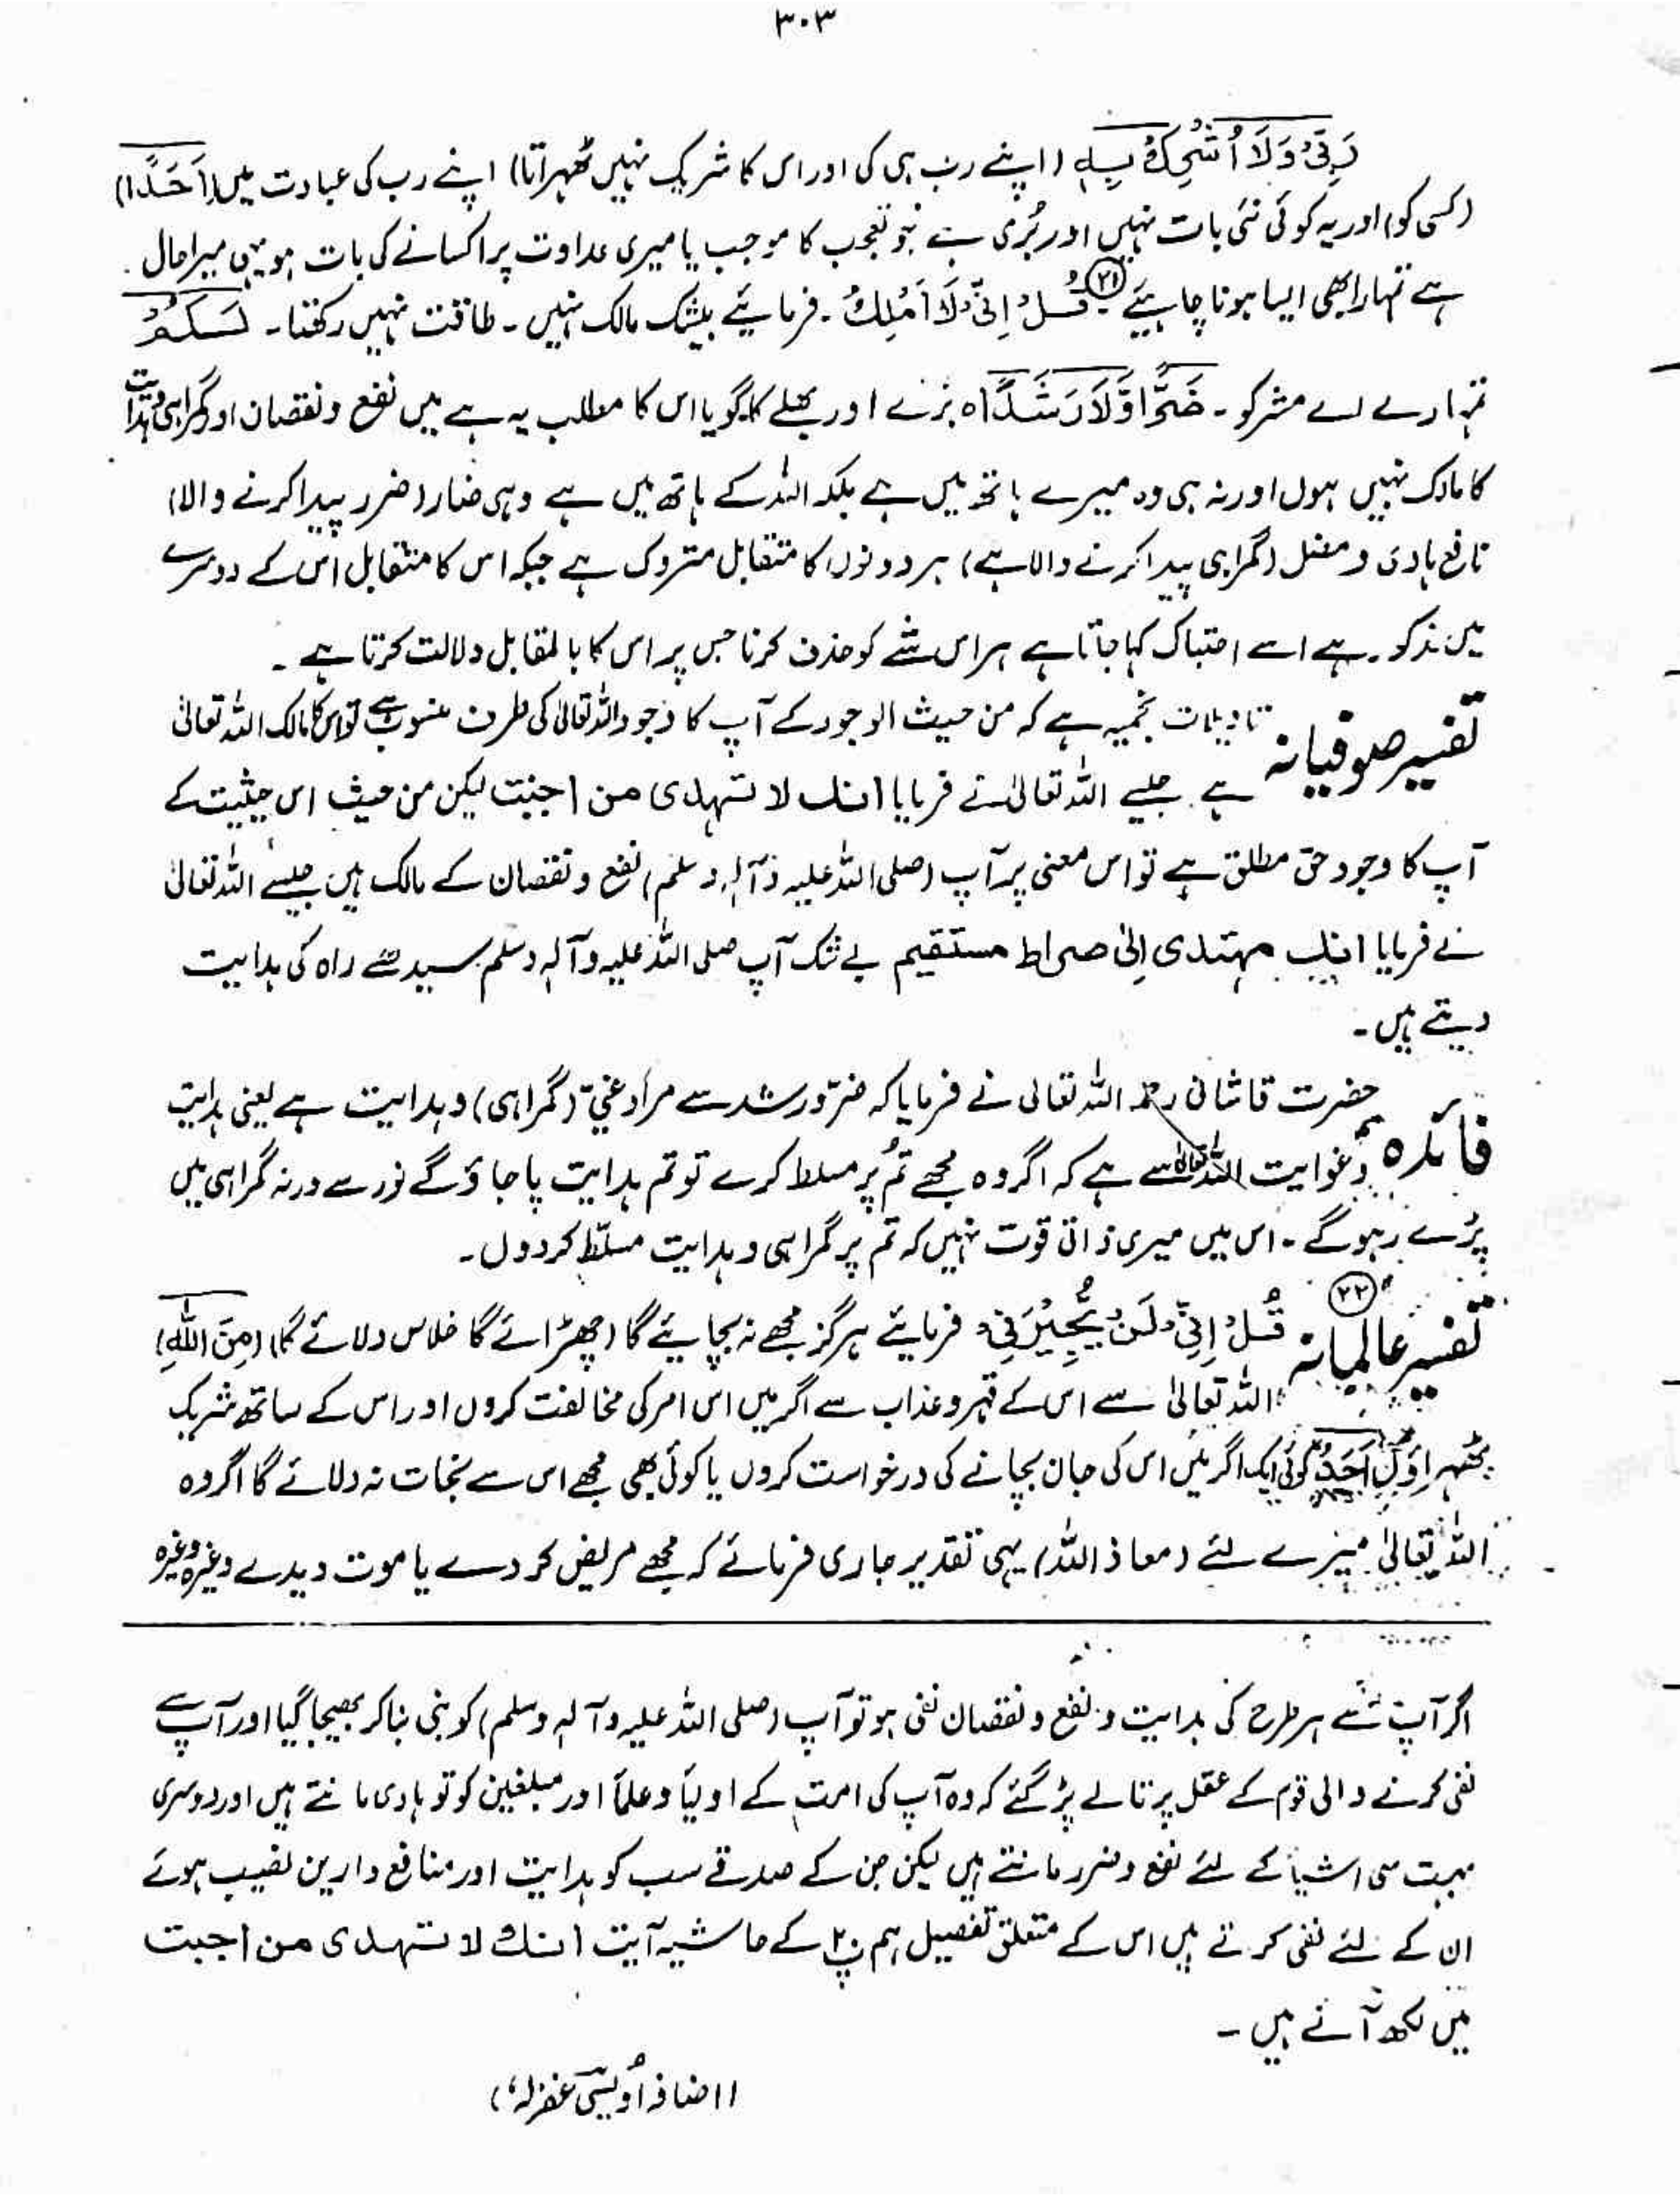 ۳۰۳
رَبِّیْ وَلَا اُشْرِكُ بِہٖ (اپنے رب ہی کی اور اس کا شریک نہیں ٹھہراتا) اپنے رب کی عبادت میں (اَحَدًا)
(کسی کو) اور یہ کوئی نئی بات نہیں اور بُری ہے جو تعجب کا موجب یا میری عداوت پر اکسانے کی بات ہو یہی میرا حال
ہے تمہارا بھی ایسا ہونا چاہیئے ۲۱ قُلْ اِنِّیْ لَا اَمْلِكُ ۔ فرمایئے بیشک مالک نہیں ۔ طاقت نہیں رکھتا ۔ لَـكُمْ
تمہارے لے مشرکو ۔ ضَرًّا وَّلَا رَشَدًا ہ بڑے اور بھلے کا گویا اس کا مطلب یہ ہے میں نفع و نقصان اور گمراہی و ہدایت
کا مالک نہیں ہوں اور نہ ہی وہ میرے ہاتھ میں ہے بلکہ اللہ کے ہاتھ میں ہے وہی ضار (ضرر پیدا کرنے والا)
نافع ہادی و مضل (گمراہی پیدا کرنے والا ہے) ہر دونوں کا متقابل متروک ہے جبکہ اس کا متقابل اس کے دوسرے
میں مذکور ہے اسے احتباک کہا جاتا ہے ہر اس شے کو حذف کرنا جس پر اس کا بالمقابل دلالت کرتا ہے ۔
تفسیر صوفیانہ تاویلات نجمیہ ہے کہ من حیث الوجود کے آپ کا وجود اللہ تعالیٰ کی طرف منسوب ہے تو اس کا مالک اللہ تعالیٰ
ہے جیسے اللہ تعالیٰ نے فرمایا انك لا تہدی من اجبت لیکن من حیث اس حیثیت کے
آپ کا وجود حق مطلق ہے تو اس معنی پر آپ (صلی اللہ علیہ وآلہٖ وسلم) نفع و نقصان کے مالک ہیں جیسے اللہ تعالیٰ
نے فرمایا انك مہتدی اِلیٰ صراط مستقیم بے شک آپ صلی اللہ علیہ وآلہٖ وسلم سیدھے راہ کی ہدایت
دیتے ہیں ۔
فائدہ حضرت قاشانی رحمہ اللہ تعالی نے فرمایا کہ ضرّ و رشد سے مراد غیّ (گمراہی) و ہدایت ہے یعنی ہدایت
و غوایت اللہ تعالیٰ سے ہے کہ اگر وہ مجھے تم پر مسلط کرے تو تم ہدایت پا جاؤ گے نور سے ورنہ گمراہی میں
پڑے رہو گے ۔ اس میں میری ذاتی قوت نہیں کہ تم پر گمراہی و ہدایت مسلّط کر دوں ۔
تفسیر عالمانہ ۲۲ قُلْ اِنِّیْ لَنْ یُّجِیْرَنِیْ فرمایئے ہرگز مجھے نہ بچایئے گا (چھڑائے گا خلاص دلائے گا) (مِنَ اللّٰهِ)
اللہ تعالیٰ سے اس کے قہر و عذاب سے اگر میں اس امر کی مخالفت کروں اور اس کے ساتھ شریک
ٹھہراؤں اَحَدٌ کوئی ایک اگر میں اس کی جان بچانے کی درخواست کروں یا کوئی بھی مجھے اس سے نجات نہ دلائے گا اگر وہ
اللہ تعالیٰ میرے لئے (معاذ اللہ) یہی تقدیر جاری فرمائے کہ مجھے مریض کر دے یا موت دیدے وغیرہ وغیرہ
اگر آپ سے ہر طرح کی ہدایت و نفع و نقصان نفی ہو تو آپ (صلی اللہ علیہ وآلہٖ وسلم) کو نبی بنا کر بھیجا گیا اور آپ سے
نفی کرنے والی قوم کے عقل پر تالے پڑ گئے کہ وہ آپ کی امت کے اولیأ و علمأ اور مبلغین کو تو ہادی مانتے ہیں اور دوسری
بہت سی اشیأ کے لئے نفع و ضرر مانتے ہیں لیکن جن کے صدقے سب کو ہدایت اور منافع دارین نصیب ہوئے
ان کے لئے نفی کرتے ہیں اس کے متعلق تفصیل ہم پ۲۰ کے حاشیہ آیت انك لا تہدی من اجبت
میں لکھ آئے ہیں ۔
(اضافہ اُویسی غفرلہٗ)